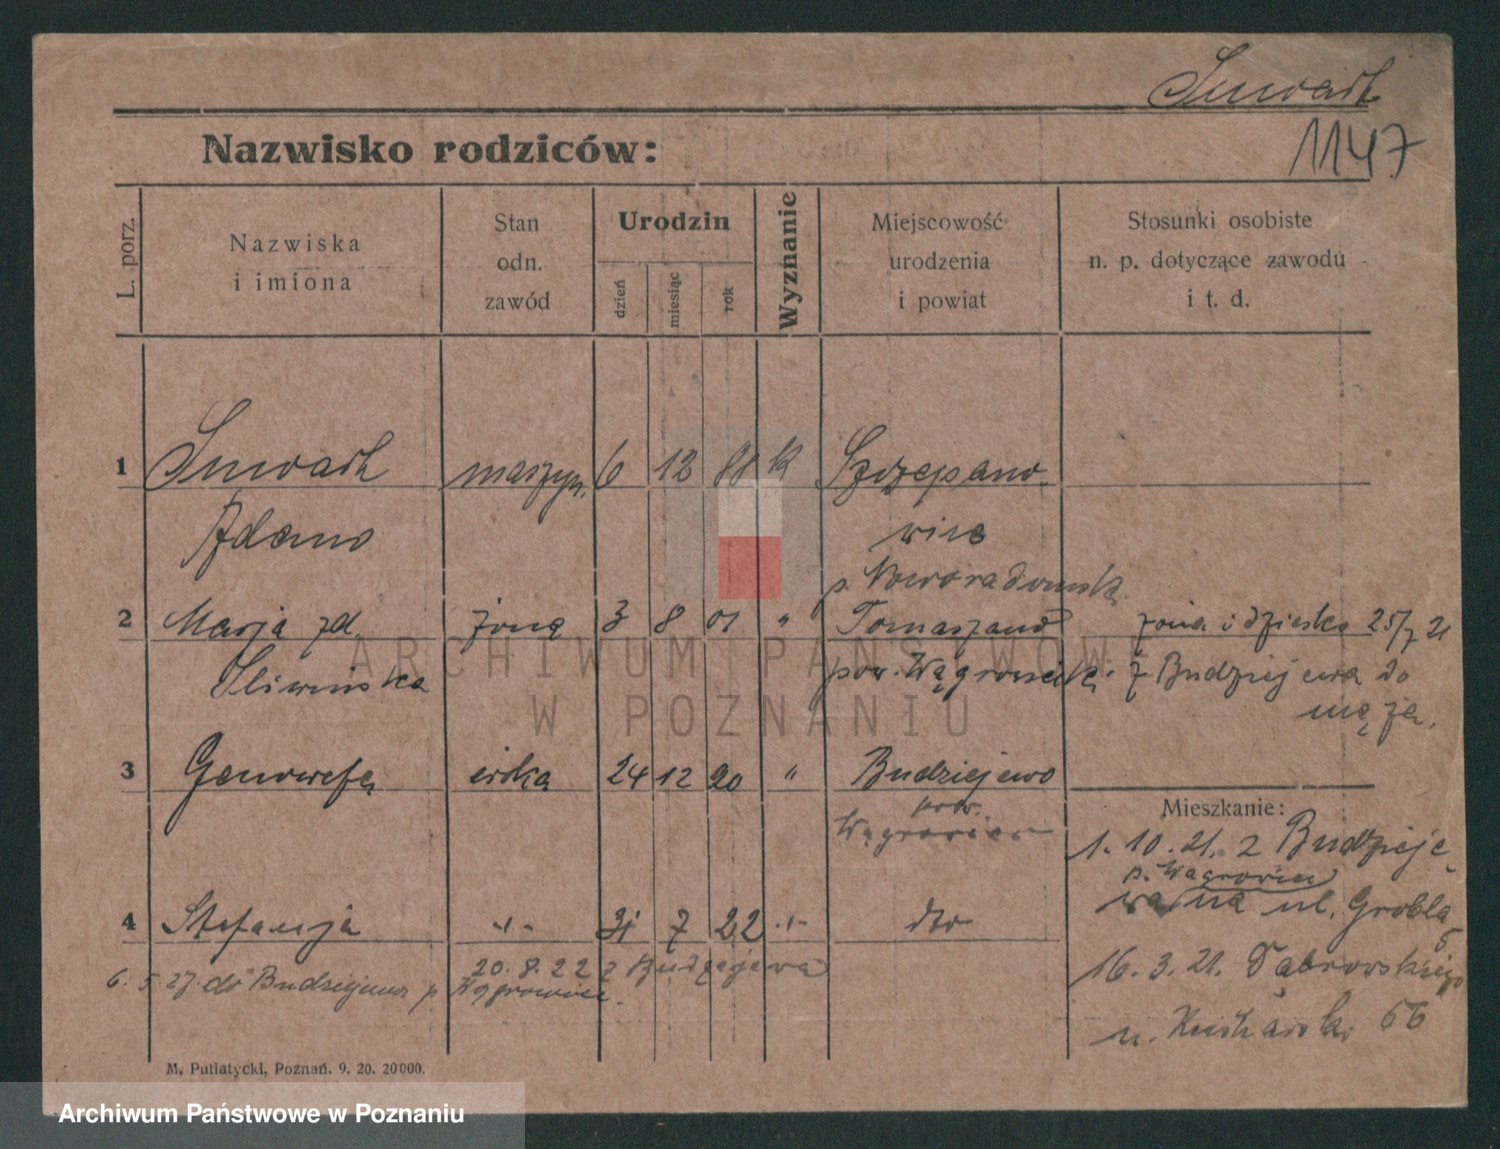 1147
Nazwisko rodziców:
L. porz.
Nazwiska
i imiona
Stan
odn.
zawód
Urodzin
dzień
miesiąc
rok
Wyznanie
Miejscowość
urodzenia
i powiat
Stosunki osobiste
n. p. dotyczące zawodu
i t. d.
1 maszyn. 6 12 88 k Szczepano-
wice
p. Noworadomsk.
2 Marja zd. żona 3 8 01 " żona i dziecko 25/7 21
Śliwińska pow. Wągrowiecki z Budziejewa do
męża.
3 Genowefa córka 24 12 20 " Budziejewo
pow.
Wągrowiec
Mieszkanie:
1. 10. 21. z Budzieje-
p. Wągrowiec
wa na ul. Grobla
5
4 Stefanja -"- 31 7 22 -"- dto
20. 8. 22 z Budziejewa
6. 5. 27. do Budziejewa p. Wągrowiec.
16. 3. 21. Dąbrowskiego
u. 56
M. Putiatycki, Poznań. 9. 20. 20000.
ARCHIWUM PAŃSTWOWE
W POZNANIU
Archiwum Państwowe w Poznaniu